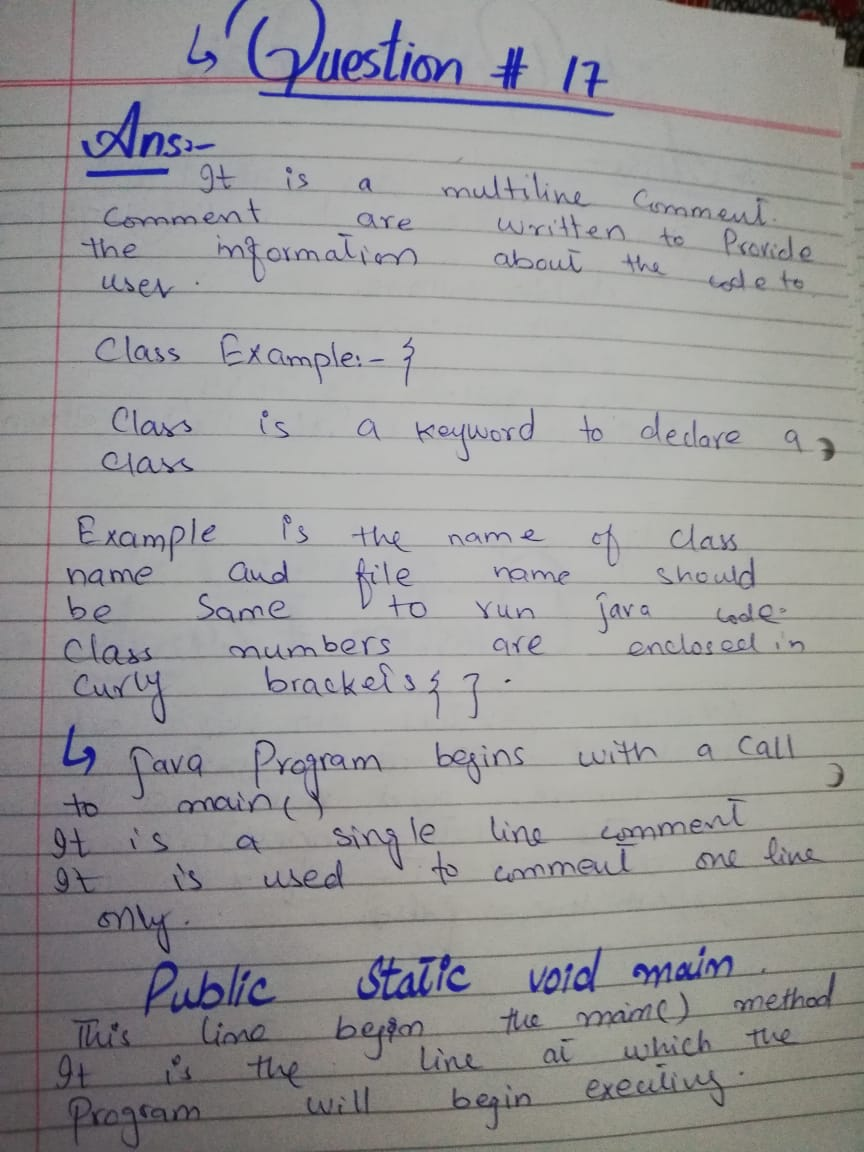 ↳ Question # 17
Ans:-
It is a multiline Comment.
Comment are written to Provide
the information about the code to
user.
Class Example:- {
Class is a keyword to declare a
class
Example is the name of class
name and file name should
be Same to run java code.
Class numbers are enclosed in
Curly brackets { }.
↳ Java Program begins with a Call
to main()
It is a single line comment
It is used to comment one line
only.
Public Static void main.
This line begin the main() method
It is the line at which the
Program will begin executing.